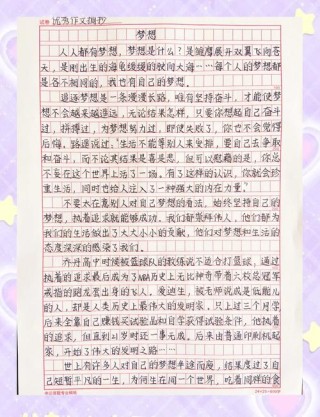 优秀作文摘抄
梦想
人人都有梦想，梦想是什么？是雏鹰展开双翼飞向苍
天，是刚出生的海龟缓缓的驶向大海……每个人的梦想都
是各不相同的，我也有自己的梦想。
追逐梦想是一条漫漫长路，唯有坚持奋斗，才能使梦
想不会越来越遥远，无论结果怎样，只要你想起自己奋斗
过，拼搏过，为梦想努力过，即使失败了，你也不会觉得
后悔。路遥说过："生活不能等别人来安排，要自己去争取
和奋斗，而不论其结果是喜是悲，但可以慰藉的是，你总
不枉在这个世界上活了一场。有了这样的认识，你就会珍
重生活，同时也给人注入了一种强大的内在力量。"
不要太在意别人对自己梦想的看法，始终坚持自己的
梦想，执着追求就能够成功。我们都崇拜伟人，他们都为
我们的生活做出了大大小小的贡献，他们对梦想和生活的
态度深深的感染了我们。
乔丹高中时候被篮球队的教练说不适合打篮球，通过
执着的追求最后成为了NBA历史上无比神奇带着六枚总冠军
戒指的踏龙套出身的飞人。爱迪生，被老师说成是低能儿
的人，却是人类历史上最伟大的发明家，只上过三个月学
后来全靠自己赚钱买试验品和自学获得试验条件，他执着
的追求，但直到21岁时还一事无成。后来由普通印刷机起
家，开始了伟大的发明之路……
世上有许多人对自己的梦想半途而废，结果度过了自
己短暂平凡的一生，为何生在同一个世界，吃着同样的食